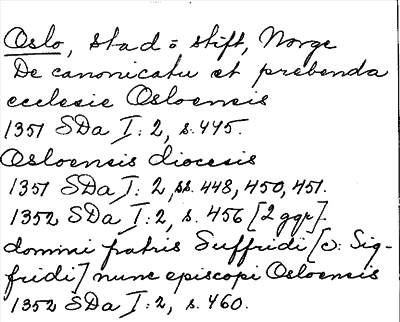 Oslo, stad o stift, Norge
De canonicatu et prebenda
ecclesie Osloensis
1351 SDa I: 2, s. 445.
Osloensis diocesis
1351 SDa I: 2, ss. 448, 450, 451.
1352 SDa I: 2, s. 456 [2 ggr].
domini patris Suffridi [ɔ: Sig-
fridi] nunc episcopi Osloensis
1352 SDa I: 2, s. 460.